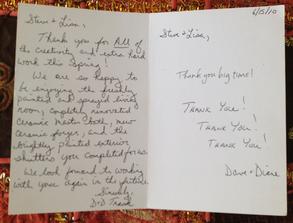 Steve & Lisa,
Thank you for All of
the creativity and extra hard
work this Spring!
We are so happy to
be enjoying the freshly
painted and sprayed living
room, completely renovated
Ceramic Master bath, new
Ceramic foyer, and the
brightly painted exterior
shutters you completed for us.
We look forward to working
with you again in the future.
Sincerely,
6/15/10
Steve & Lisa,
Thank you big time!
THANK YOU!
THANK YOU!
THANK YOU!
Dave & Diane